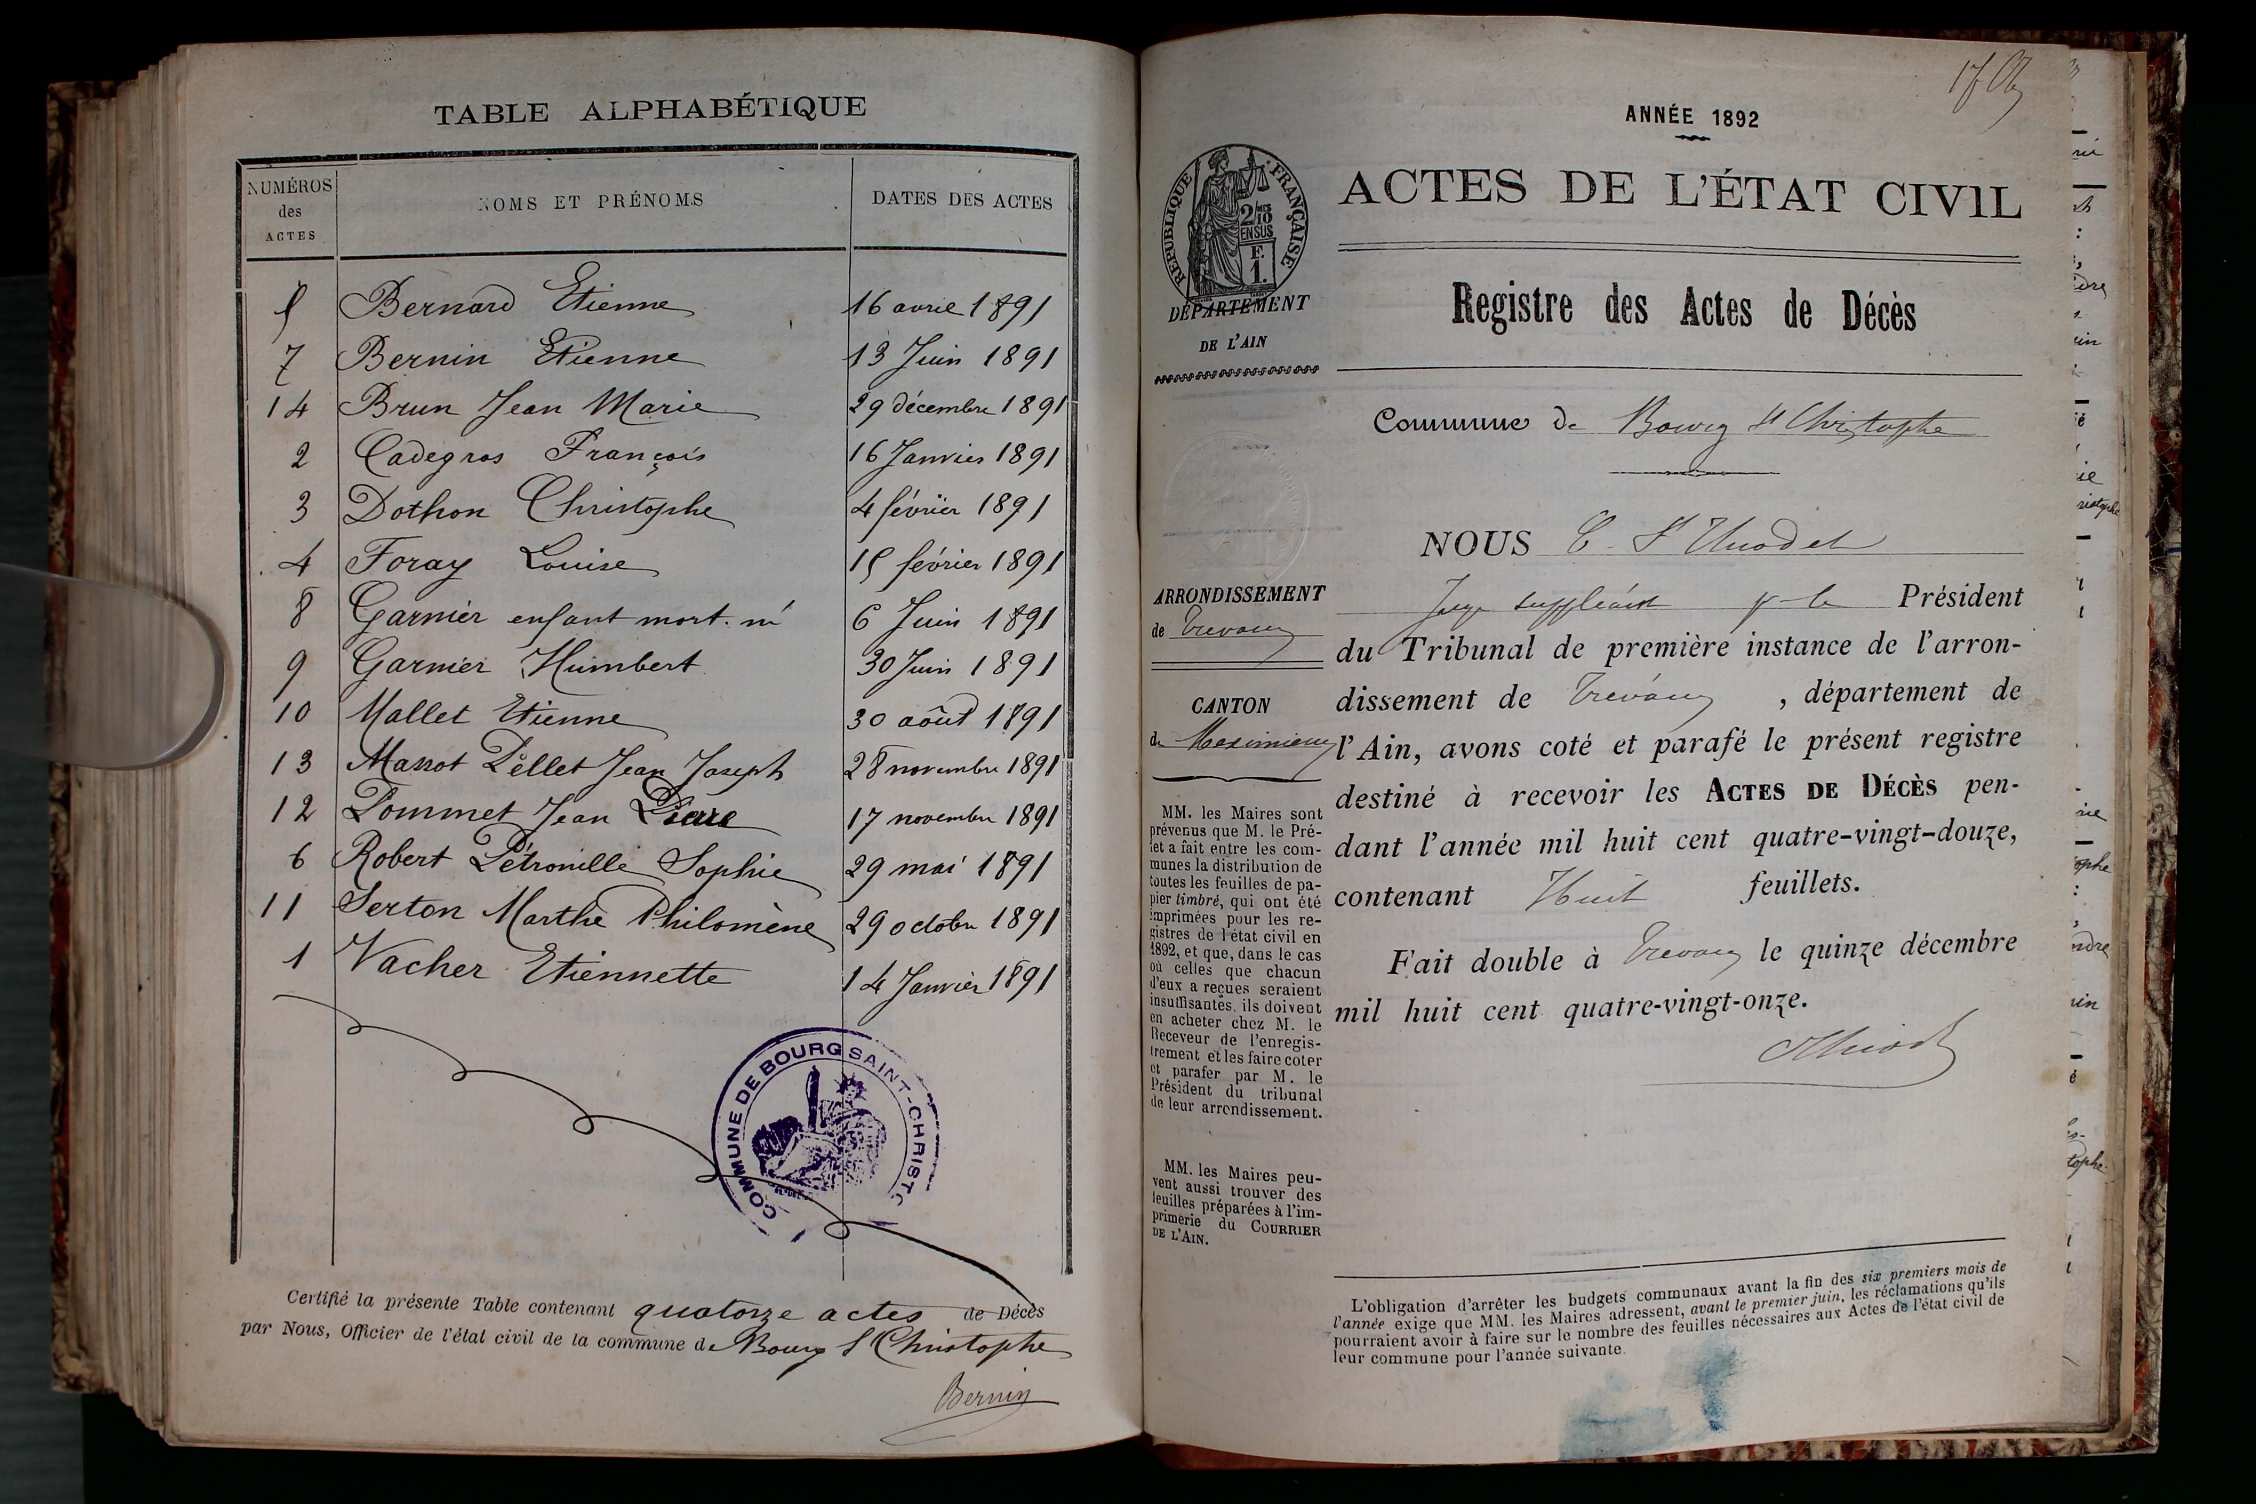 TABLE ALPHABÉTIQUE
NUMÉROS des ACTES NOMS ET PRÉNOMS DATES DES ACTES
5 Bernard Etienne 16 avril 1891
7 Bernin Etienne 13 Juin 1891
14 Brun Jean Marie 29 décembre 1891
2 Cadegros François 16 Janvier 1891
3 Dothon Christophe 4 février 1891
4 Foray Louise 15 février 1891
8 Garnier enfant mort-né 6 Juin 1891
9 Garnier Humbert 30 Juin 1891
10 Mallet Etienne 30 août 1891
13 Massot Pellet Jean Joseph 28 novembre 1891
12 Pommet Jean Pierre 17 novembre 1891
6 Robert Pétronille Sophie 29 mai 1891
11 Serton Marthe Philomène 29 octobre 1891
1 Vacher Etiennette 14 Janvier 1891
COMMUNE DE BOURG SAINT-CHRISTO
Certifié la présente Table contenant quatorze actes de Décès
par Nous, Officier de l'état civil de la commune de Bourg St Christophe
Bernin
ANNÉE 1892
RÉPUBLIQUE FRANÇAISE
2/10 EN SUS
F. 1.
DÉPARTEMENT
DE L'AIN
ACTES DE L'ÉTAT CIVIL
Registre des Actes de Décès
Commune de Bourg St Christophe
ARRONDISSEMENT
de Trévoux
CANTON
de Meximieux
MM. les Maires sont
prévenus que M. le Pré-
fet a fait entre les com-
munes la distribution de
toutes les feuilles de pa-
pier timbré, qui ont été
imprimées pour les re-
gistres de l'état civil en
1892, et que, dans le cas
où celles que chacun
d'eux a reçues seraient
insuffisantes, ils doivent
en acheter chez M. le
Receveur de l'enregis-
trement et les faire coter
et parafer par M. le
Président du tribunal
de leur arrondissement.
MM. les Maires peu-
vent aussi trouver des
feuilles préparées à l'im-
primerie du COURRIER
DE L'AIN.
NOUS
Juge suppléant pr le Président
du Tribunal de première instance de l'arron-
dissement de Trévoux, département de
l'Ain, avons coté et parafé le présent registre
destiné à recevoir les ACTES DE DÉCÈS pen-
dant l'année mil huit cent quatre-vingt-douze,
contenant Huit feuillets.
Fait double à Trévoux le quinze décembre
mil huit cent quatre-vingt-onze.
L'obligation d'arrêter les budgets communaux avant la fin des six premiers mois de
l'année exige que MM. les Maires adressent, avant le premier juin, les réclamations qu'ils
pourraient avoir à faire sur le nombre des feuilles nécessaires aux Actes de l'état civil de
leur commune pour l'année suivante.